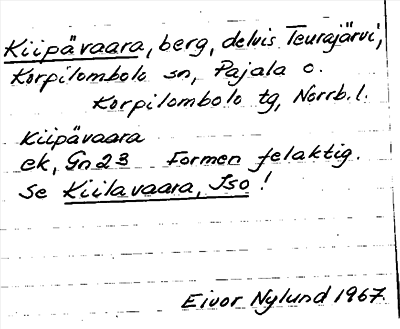 Kiipävaara, berg, delvis Teurajärvi,
Korpilombolo sn, Pajala o.
Korpilombolo tg, Norrb.l.
Kiipävaara
ek, Gn23 Formen felaktig.
Se Kiilavaara, Iso!
Eivor Nylund 1967.